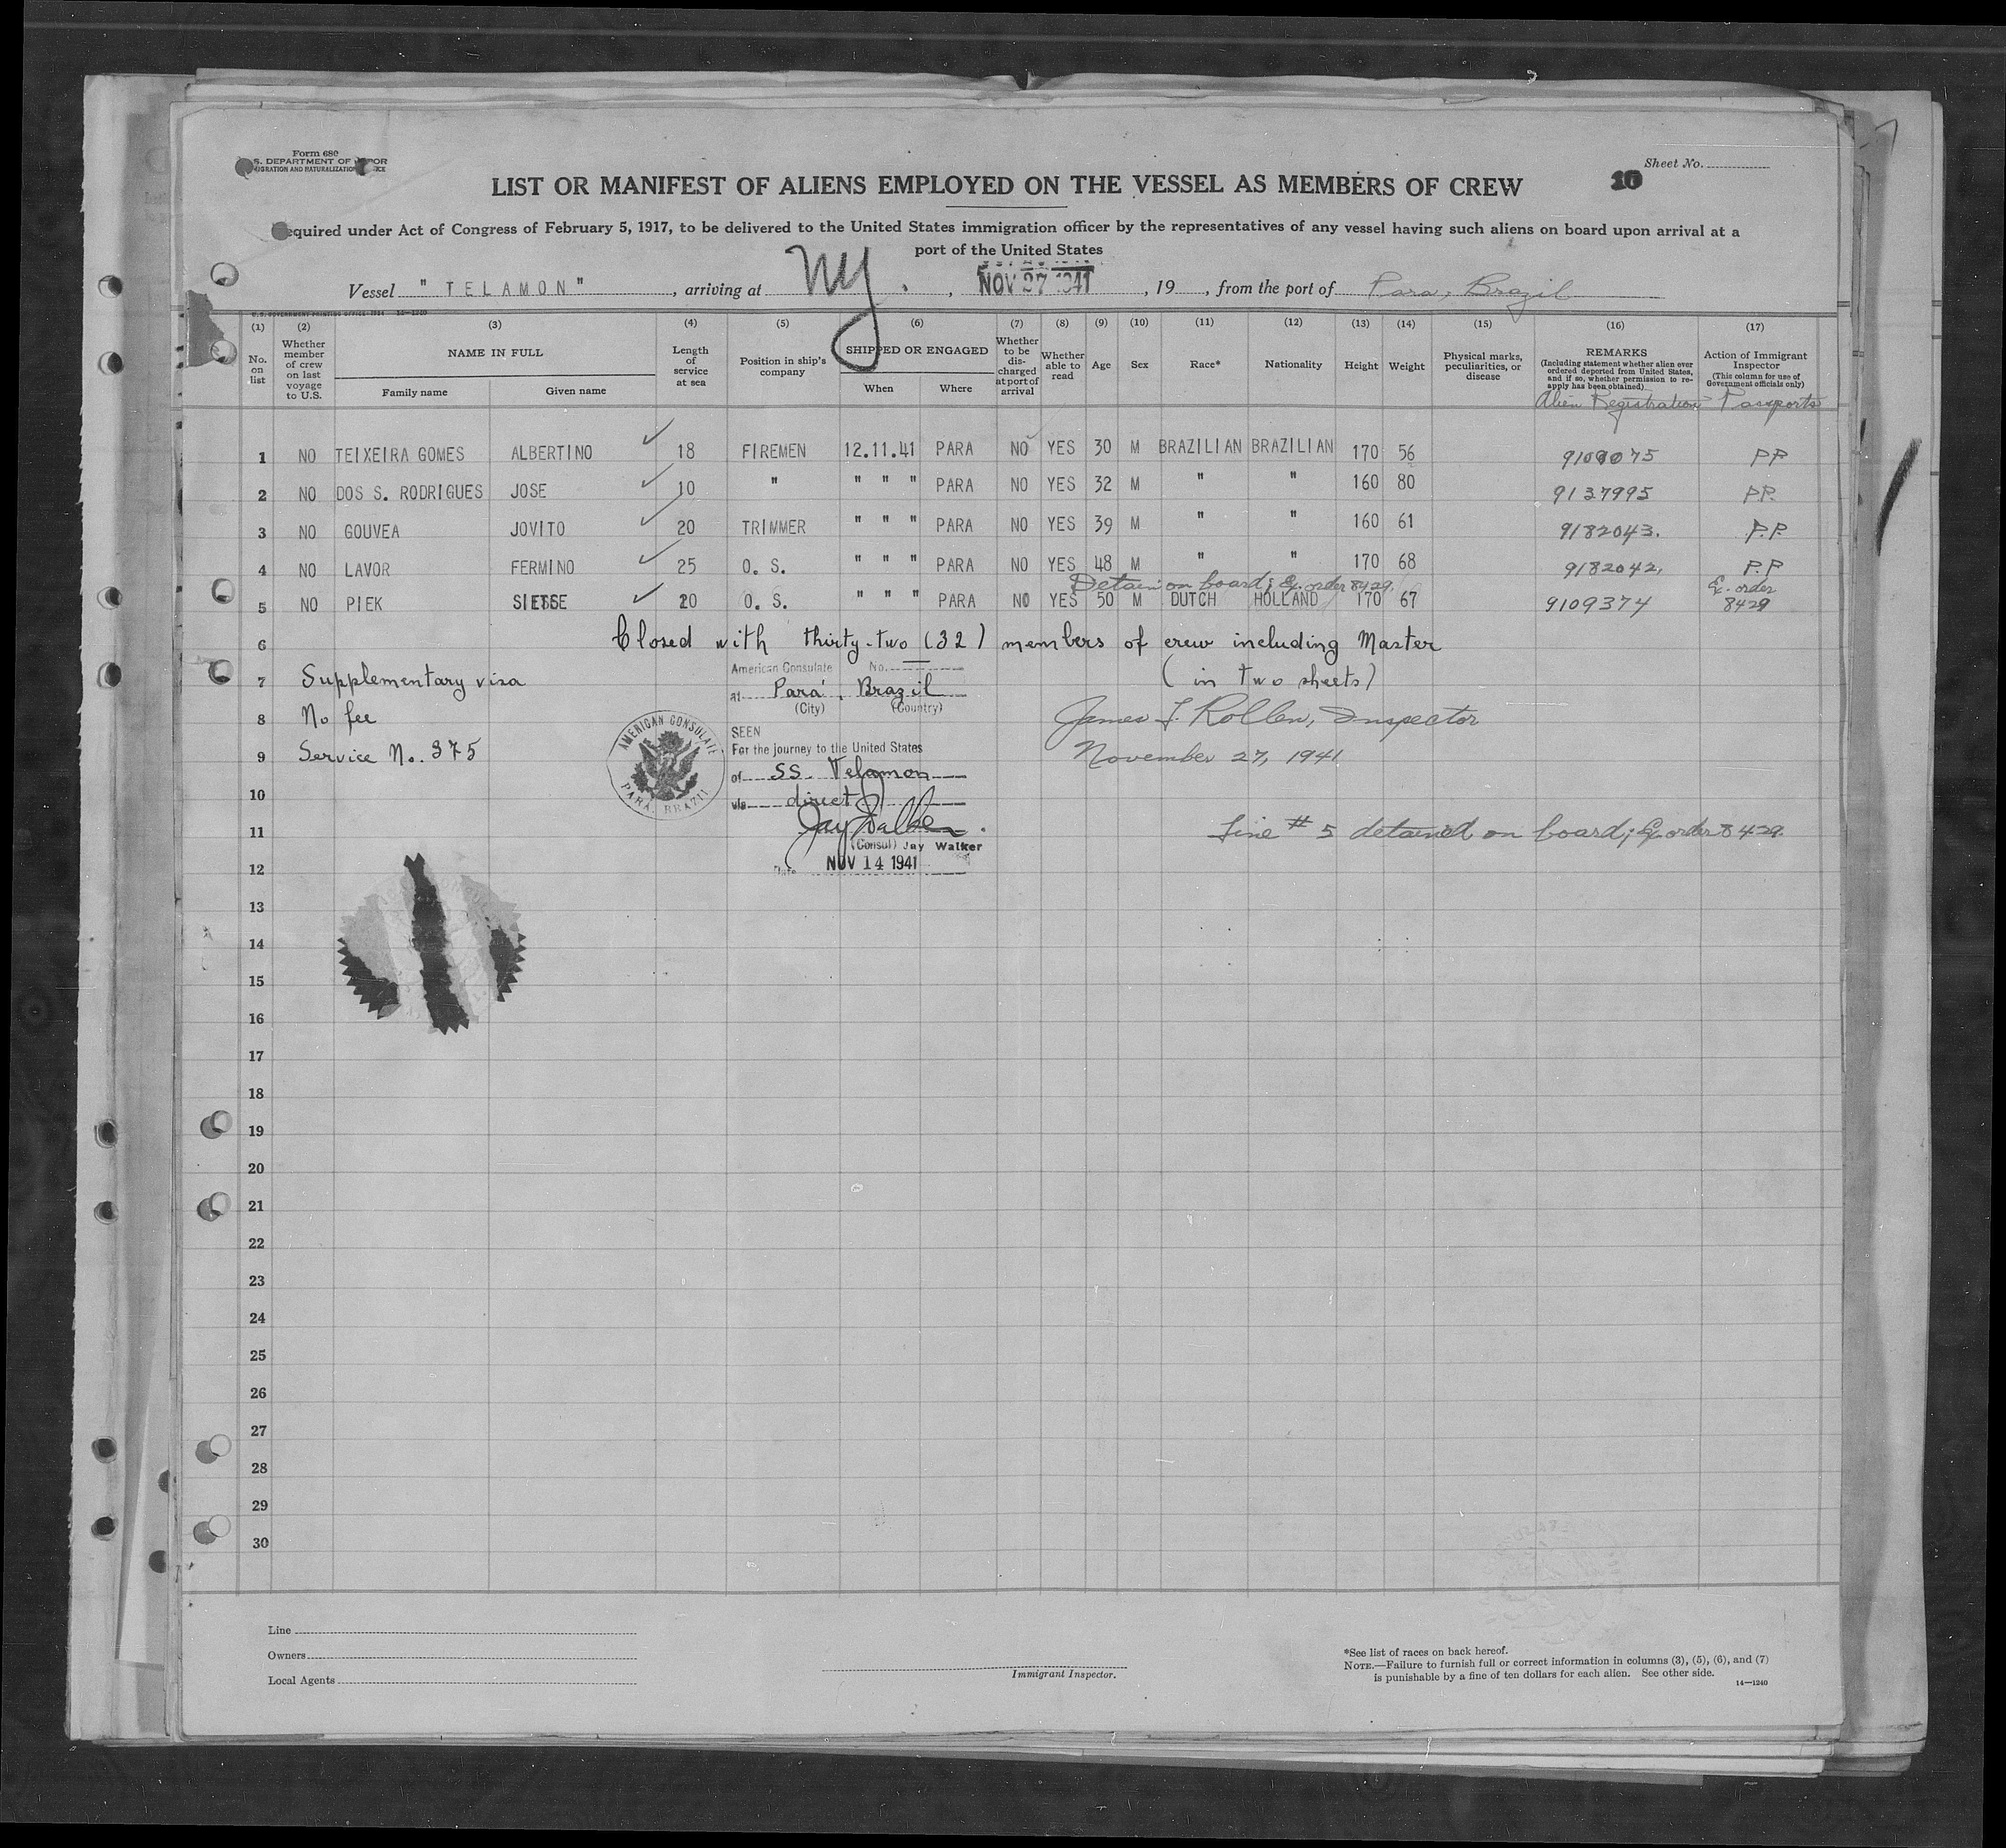 Form 680
S. DEPARTMENT OF
LIST OR MANIFEST OF ALIENS EMPLOYED ON THE VESSEL AS MEMBERS OF CREW
Sheet No.
10
equired under Act of Congress of February 5, 1917, to be delivered to the United States immigration officer by the representatives of any vessel having such aliens on board upon arrival at a
port of the United States
Vessel "TELAMON", arriving at NY., NOV 27 1941, 19, from the port of Para, Brazil
(1) (2) (3) (4) (5) (6) (7) (8) (9) (10) (11) (12) (13) (14) (15) (16) (17)
No. on list
Whether member of crew on last voyage to U.S.
NAME IN FULL
Family name
Given name
Length of service at sea
Position in ship's company
SHIPPED OR ENGAGED
When
Where
Whether to be discharged at port of arrival
Whether able to read
Age
Sex
Race*
Nationality
Height
Weight
Physical marks, peculiarities, or disease
REMARKS
(Including statement whether alien ever ordered deported from United States, and if so, whether permission to reapply has been obtained)
Alien Registration
Action of Immigrant Inspector
(This column for use of Government officials only)
Passports
1 NO TEIXEIRA GOMES ALBERTINO 18 FIREMEN 12.11.41 PARA NO YES 30 M BRAZILIAN BRAZILIAN 170 56 9109075 PP
2 NO DOS S. RODRIGUES JOSE 10 " " " " PARA NO YES 32 M " " 160 80 9137995 P.P.
3 NO GOUVEA JOVITO 20 TRIMMER " " " PARA NO YES 39 M " " 160 61 9182043. P.P.
4 NO LAVOR FERMINO 25 O. S. " " " PARA NO YES 48 M " " 170 68 9182042, P.P
Detain on board; Ex. order 8429.
5 NO PIEK SIETSE 20 O. S. " " " PARA NO YES 50 M DUTCH HOLLAND 170 67 9109374 Ex. order 8429
6 Closed with thirty-two (32) members of crew including Master
7 Supplementary visa
(in two sheets)
8 No fee
9 Service No. 375
American Consulate No.
at Pará, Brazil
(City) (Country)
SEEN
For the journey to the United States
of SS. Telamon
via direct
Jay Walker
(Consul) Jay Walker
Date NOV 14 1941
AMERICAN CONSULATE
PARÁ, BRAZIL
James F. Rollen, Inspector
November 27, 1941
Line # 5 detained on board; Ex. order 8429.
10
11
12
13
14
15
16
17
18
19
20
21
22
23
24
25
26
27
28
29
30
Line
Owners
Local Agents
Immigrant Inspector.
*See list of races on back hereof.
NOTE.—Failure to furnish full or correct information in columns (3), (5), (6), and (7)
is punishable by a fine of ten dollars for each alien. See other side.
14—1240